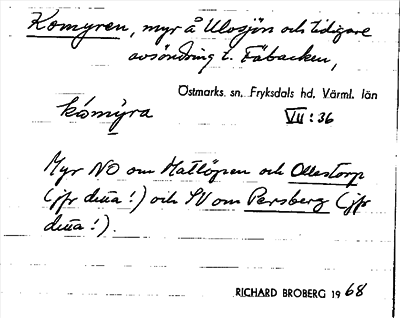 Komyren, myr å Ulvsjön och tidigare
avsöndring t. Fäbacken,
Östmarks. sn. Fryksdals hd. Värml. län
kómỳra VII : 36
Myr NO om Mattöpen och Ollestorp
(jfr detta!) och SV om Persberg (jfr
detta!).
RICHARD BROBERG 1968